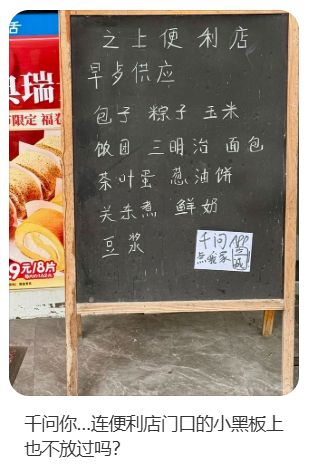 活
瑞
限定 福卷
9元/8片
之上便利店
早歺供应
包子 粽子 玉米
饭团 三明治 面包
茶叶蛋 葱油饼
关东煮 鲜奶
豆浆
千问APP
千问你...连便利店门口的小黑板上
也不放过吗?